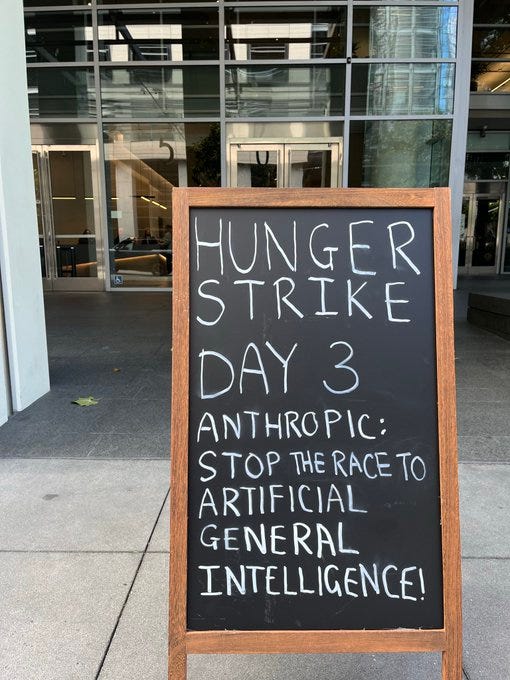 HUNGER
STRIKE
DAY 3
ANTHROPIC:
STOP THE RACE TO
ARTIFICIAL
GENERAL
INTELLIGENCE!